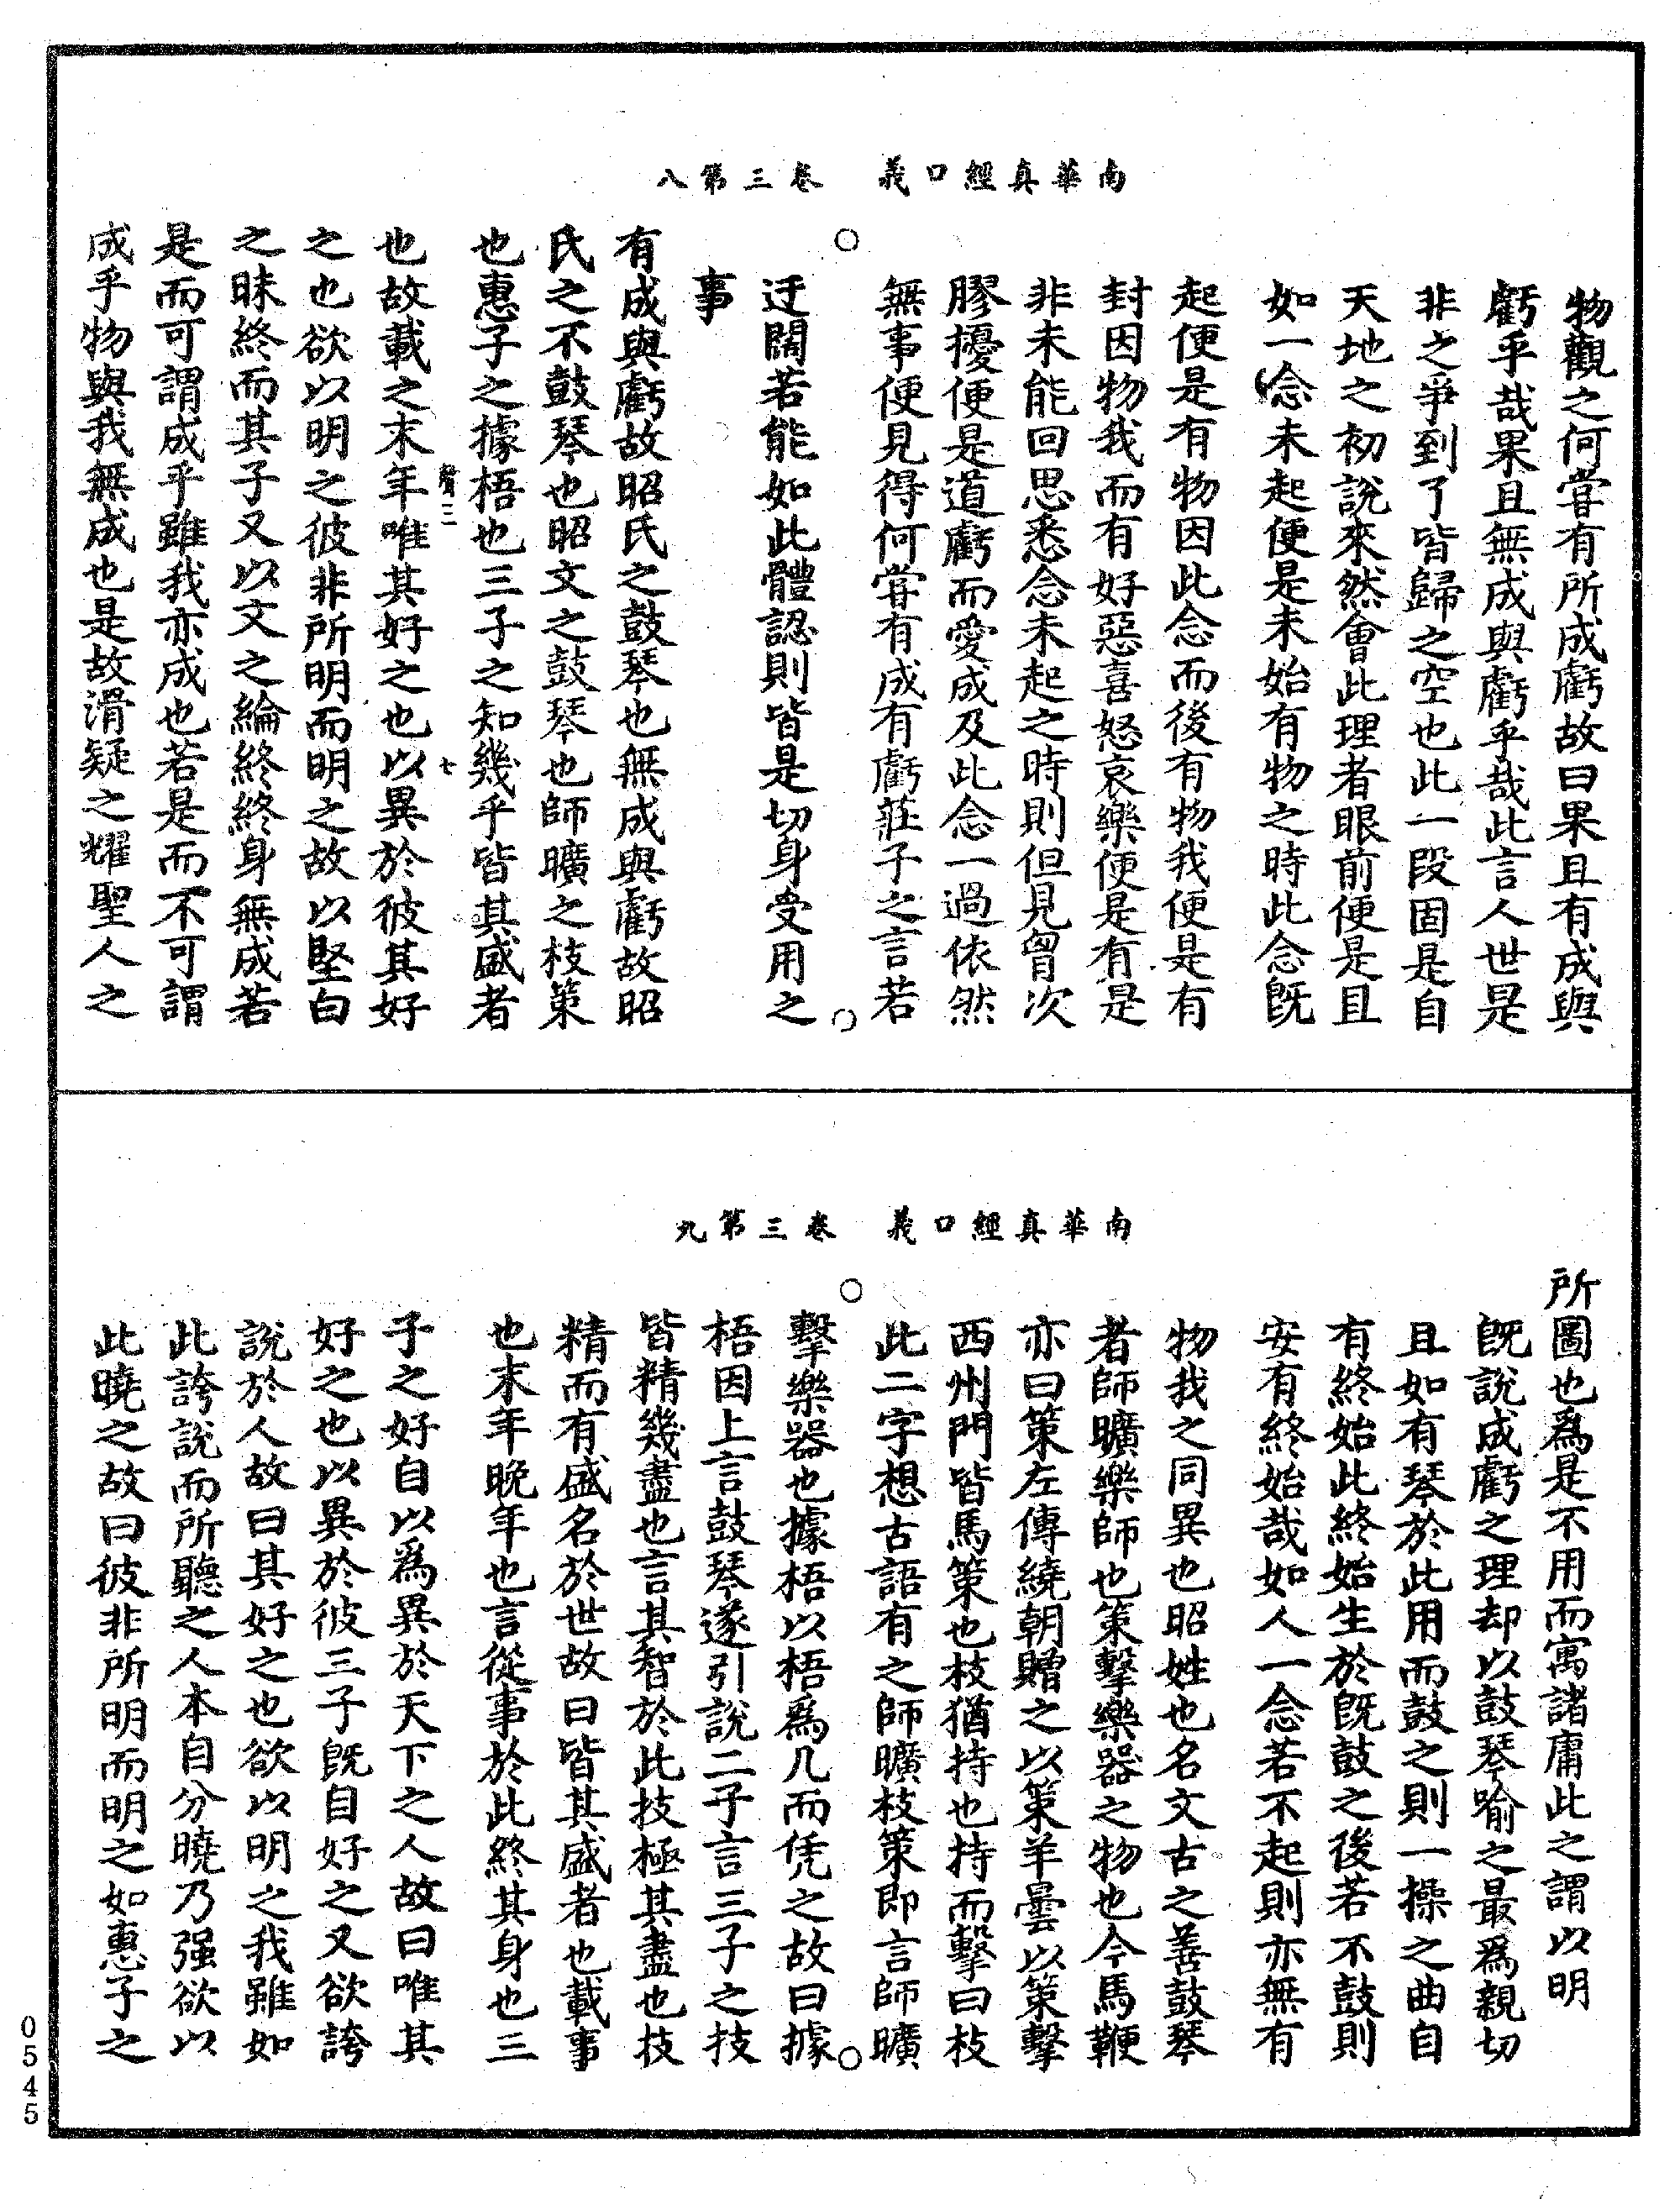 南華真經口義　卷三第八
物觀之何嘗有所成虧故曰果且有成與
虧乎哉果且無成與虧乎哉此言人世是
非之爭到了皆歸之空也此一段固是自
天地之初說來然會此理者眼前便是且
如一念未起便是未始有物之時此念旣
起便是有物因此念而後有物我便是有
封因物我而有好惡喜怒哀樂便是有是
非未能回思悉念未起之時則但見胷次
膠擾便是道虧而愛成及此念一過依然
無事便見得何嘗有成有虧莊子之言若
迂闊若能如此體認則皆是切身受用之
事
有成與虧故昭氏之鼓琴也無成與虧故昭
氏之不鼓琴也昭文之鼓琴也師曠之枝策
也惠子之據梧也三子之知幾乎皆其盛者
聲三　七
也故載之末年唯其好之也以異於彼其好
之也欲以明之彼非所明而明之故以堅白
之昧終而其子又以文之綸終終身無成若
是而可謂成乎雖我亦成也若是而不可謂
成乎物與我無成也是故滑疑之耀聖人之
南華真經口義　卷三第九
所圖也爲是不用而寓諸庸此之謂以明
旣說成虧之理却以鼓琴喻之最爲親切
且如有琴於此用而鼓之則一操之曲自
有終始此終始生於旣鼓之後若不鼓則
安有終始哉如人一念若不起則亦無有
物我之同異也昭姓也名文古之善鼓琴
者師曠樂師也策擊樂器之物也今馬鞭
亦曰策左傳繞朝贈之以策羊曇以策擊
西州門皆馬策也枝猶持也持而擊曰枝
此二字想古語有之師曠枝策即言師曠
擊樂器也據梧以梧爲几而凭之故曰據
梧因上言鼓琴遂引說二子言三子之技
皆精幾盡也言其智於此技極其盡也技
精而有盛名於世故曰皆其盛者也載事
也末年晚年也言從事於此終其身也三
子之好自以爲異於天下之人故曰唯其
好之也以異於彼三子旣自好之又欲誇
說於人故曰其好之也欲以明之我雖如
此誇說而所聽之人本自分曉乃强欲以
此曉之故曰彼非所明而明之如惠子之
0545